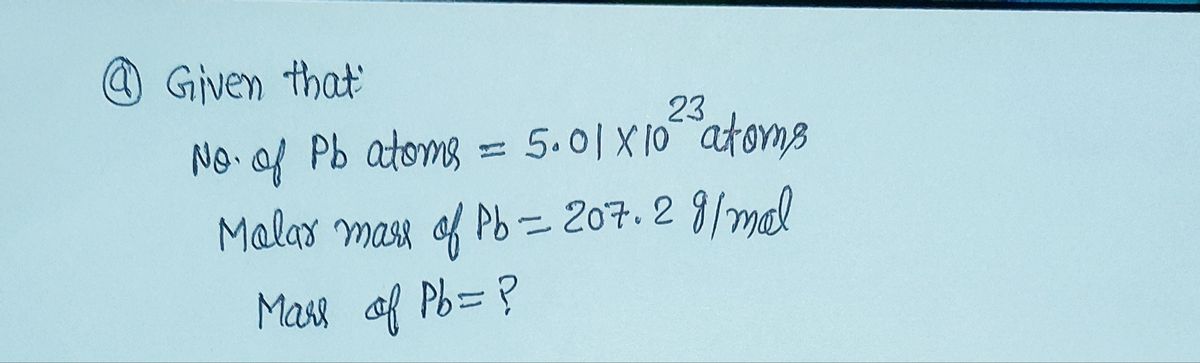 ⓐ Given that:
No. of Pb atoms = 5.01 X 10²³ atoms
Molar mass of Pb = 207.2 g/mol
Mass of Pb = ?